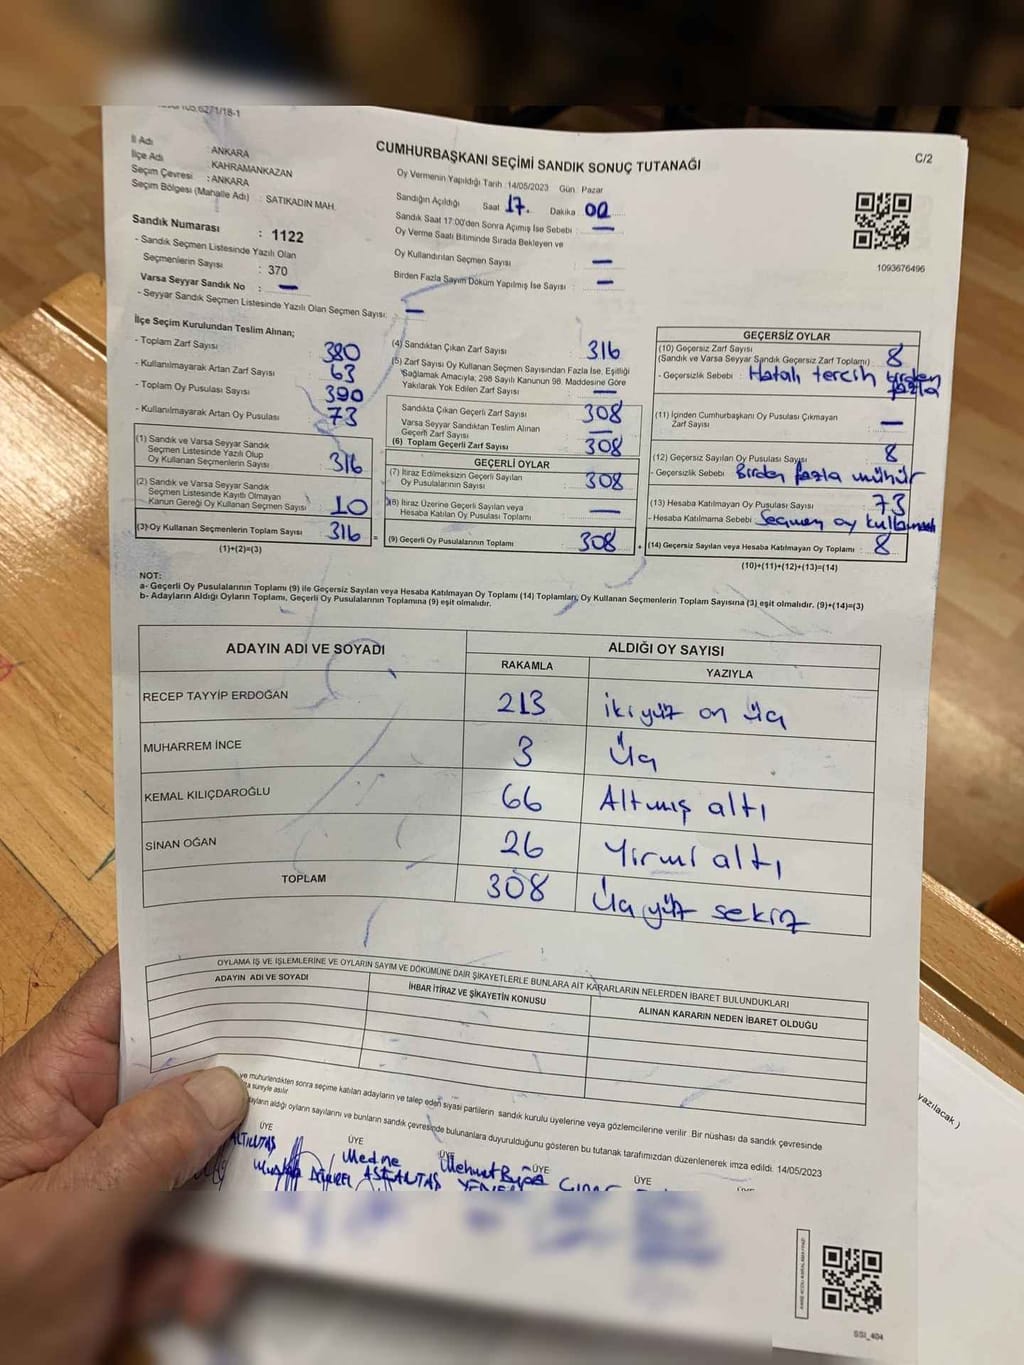 CUMHURBAŞKANI SEÇİMİ SANDIK SONUÇ TUTANAĞI
C/2
İl Adı : ANKARA
İlçe Adı : KAHRAMANKAZAN
Seçim Çevresi : ANKARA
Seçim Bölgesi (Mahalle Adı) : SATIKADIN MAH.
Sandık Numarası : 1122
- Sandık Seçmen Listesinde Yazılı Olan
Seçmenlerin Sayısı : 370
Varsa Seyyar Sandık No : —
- Seyyar Sandık Seçmen Listesinde Yazılı Olan Seçmen Sayısı: —
Oy Vermenin Yapıldığı Tarih :14/05/2023 Gün Pazar
Sandığın Açıldığı Saat 17. Dakika 00
Sandık Saat 17:00'den Sonra Açımış İse Sebebi : —
Oy Verme Saati Bitiminde Sırada Bekleyen ve
Oy Kullandırılan Seçmen Sayısı : —
Birden Fazla Sayım Döküm Yapılmış İse Sayısı : —
1093676496
İlçe Seçim Kurulundan Teslim Alınan;
- Toplam Zarf Sayısı : 380
- Kullanılmayarak Artan Zarf Sayısı : 63
- Toplam Oy Pusulası Sayısı : 390
- Kullanılmayarak Artan Oy Pusulası : 73
(1) Sandık ve Varsa Seyyar Sandık
Seçmen Listesinde Yazılı Olup
Oy Kullanan Seçmenlerin Sayısı : 316
(2) Sandık ve Varsa Seyyar Sandık
Seçmen Listesinde Kayıtlı Olmayan
Kanun Gereği Oy Kullanan Seçmen Sayısı : 10
(3) Oy Kullanan Seçmenlerin Toplam Sayısı : 316 =
(1)+(2)=(3)
(4) Sandıktan Çıkan Zarf Sayısı : 316
(5) Zarf Sayısı Oy Kullanan Seçmen Sayısından Fazla İse, Eşitliği
Sağlamak Amacıyla, 298 Sayılı Kanunun 98. Maddesine Göre
Yakılarak Yok Edilen Zarf Sayısı : —
Sandıkta Çıkan Geçerli Zarf Sayısı : 308
Varsa Seyyar Sandıktan Teslim Alınan
Geçerli Zarf Sayısı : —
(6) Toplam Geçerli Zarf Sayısı : 308
GEÇERLİ OYLAR
(7) İtiraz Edilmeksizin Geçerli Sayılan
Oy Pusulalarının Sayısı : 308
(8) İtiraz Üzerine Geçerli Sayılan veya
Hesaba Katılan Oy Pusulası Toplamı : —
(9) Geçerli Oy Pusulalarının Toplamı : 308 +
GEÇERSİZ OYLAR
(10) Geçersiz Zarf Sayısı
(Sandık ve Varsa Seyyar Sandık Geçersiz Zarf Toplamı) : 8
- Geçersizlik Sebebi : Hatalı tercih birden
fazla
(11) İçinden Cumhurbaşkanı Oy Pusulası Çıkmayan
Zarf Sayısı : —
(12) Geçersiz Sayılan Oy Pusulası Sayısı : 8
- Geçersizlik Sebebi : Birden fazla mühür
(13) Hesaba Katılmayan Oy Pusulası Sayısı : 73
- Hesaba Katılmama Sebebi : Seçmen oy
(14) Geçersiz Sayılan veya Hesaba Katılmayan Oy Toplamı : 8
(10)+(11)+(12)+(13)=(14)
NOT:
a- Geçerli Oy Pusulalarının Toplamı (9) ile Geçersiz Sayılan veya Hesaba Katılmayan Oy Pusulası Toplamı (14) Toplamları, Oy Kullanan Seçmenlerin Toplam Sayısına (3) eşit olmalıdır. (9)+(14)=(3)
b- Adayların Aldığı Oyların Toplamı, Geçerli Oy Pusulalarının Toplamına (9) eşit olmalıdır.
ADAYIN ADI VE SOYADI
ALDIĞI OY SAYISI
RAKAMLA YAZIYLA
RECEP TAYYİP ERDOĞAN 213 ikiyüz on üç
MUHARREM İNCE 3 Üç
KEMAL KILIÇDAROĞLU 66 Altmış altı
SİNAN OĞAN 26 Yirmi altı
TOPLAM 308 Üçyüz sekiz
OYLAMA İŞ VE İŞLEMLERİNE VE OYLARIN SAYIM VE DÖKÜMÜNE DAİR ŞİKAYETLERLE BUNLARA AİT KARARLARIN NELERDEN İBARET BULUNDUKLARI
ADAYIN ADI VE SOYADI
İHBAR İTİRAZ VE ŞİKAYETİN KONUSU
ALINAN KARARIN NEDEN İBARET OLDUĞU
ve mühürlendikten sonra seçime katılan adayların ve talep eden siyasi partilerin sandık kurulu üyelerine veya gözlemcilerine verilir. Bir nüshası da sandık çevresinde
süreyle asılır.
adayların aldığı oyların sayılarını ve bunların sandık çevresinde bulunanlara duyurulduğunu gösteren bu tutanak tarafımızdan düzenlenerek imza edildi. 14/05/2023
ÜYE ÜYE ÜYE ÜYE ÜYE
Medine Mehmet
yazılacak )
SSI_404